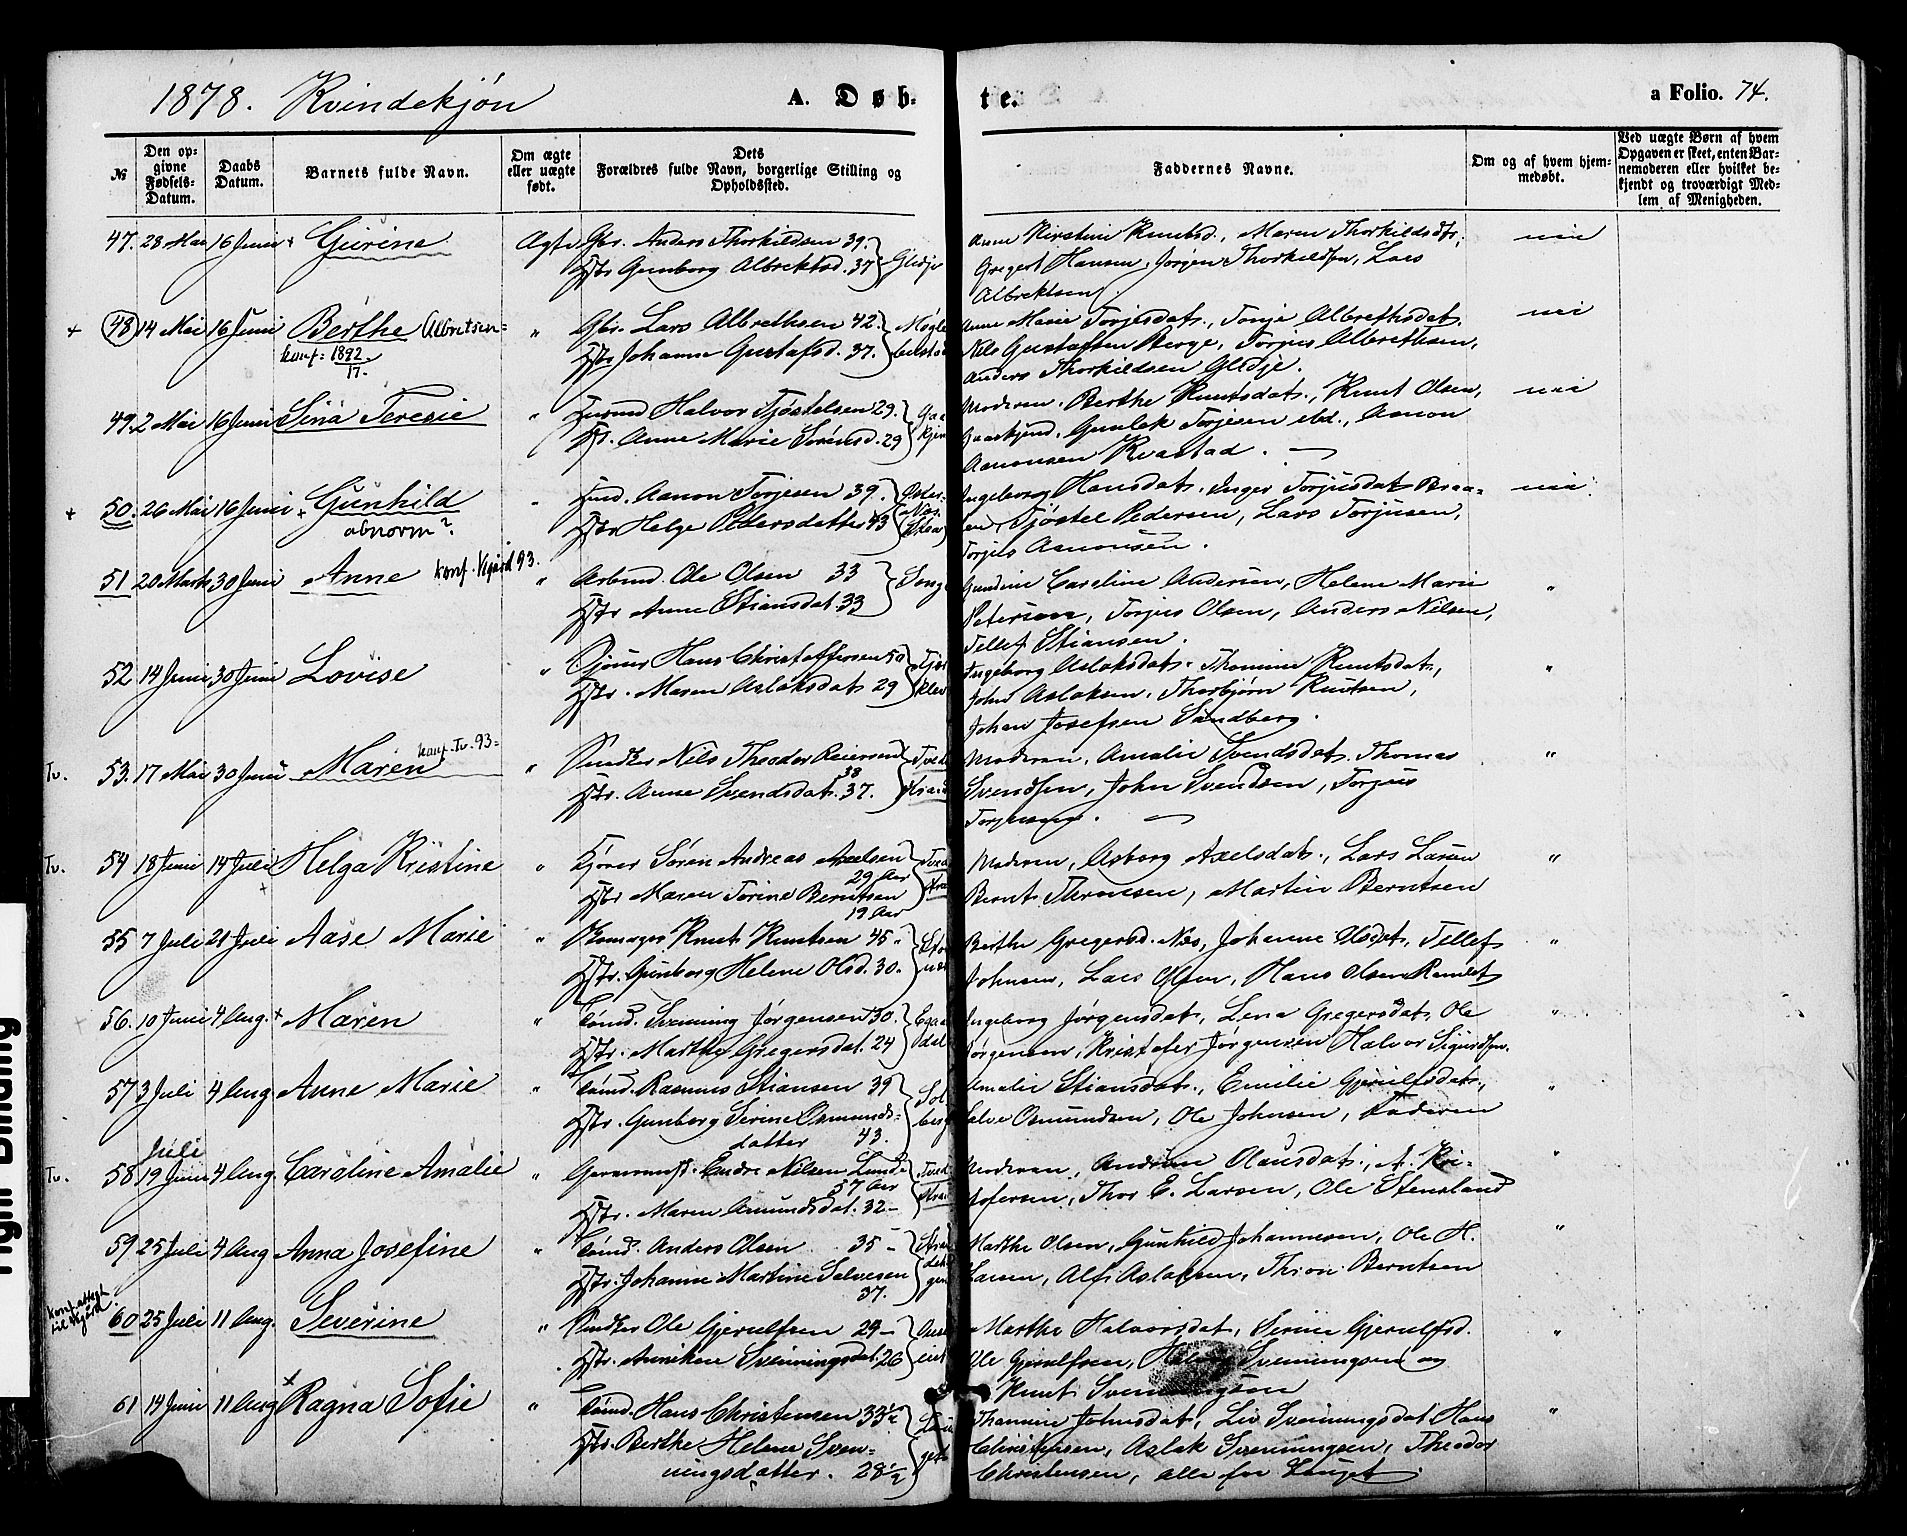 1878. Kvindekjøn
A. Døb-
te.
a Folio. 74.
№
Den op-
givne
Fødsels-
Datum.
Daabs
Datum.
Barnets fulde Navn.
Om ægte
eller uægte
født.
Dets
Forældres fulde Navn, borgerlige Stilling og
Opholdssted.
Faddernes Navne.
Om og af hvem hjem-
medøbt.
Ved uægte Børn af hvem
Opgaven er skeet, enten Bar-
nemoderen eller hvilket be-
kjendt og troværdigt Med-
lem af Menigheden.
47. 28 Mai 16 Juni + Gurine Ægte Gbr. Anders Thorkildsen 39.
Hstr Gunborg Albrektsd. 37 Glidje
Anne Kirstine Knutsd., Maren Thorkildsdtr,
Gregert Hansen, Jørgen Thorkildsen, Lars
Albrektsen
nei
+ 48 14 Mai 16 Juni Berthe Albretsen= " Gbr. Lars Albrethsen 42.
konf= 1892
17.
Hstr Johanne Gustafsd. 37.
Anne Marie Torjusdat., Tonje Albrethsdat.
Nils Gustafsen Berge, Torjus Albrethsen,
Anders Thorkildsen Glidje.
nei
49. 2 Mai 16 Juni Sina Teresie " Halvor Tjøstelsen 29.
Hst. Anne Marie Sørensd. 29
Moderen. Berthe Knutsdat., Knut Olsen,
Gaaskjend, Gunlek Torjesen ibd., Aanon
Aanonsen Kvastad.
nei
+ 50. 26 Mai 16 Juni + Gunhild " Aanon Torjesen 39.
abnorm?
Hstr Helge Pedersdatter 43
Ingeborg Hansdat. Inger Torjusdat Braa-
ten, Tjøstel Pedersen, Lars Torjusen,
Torjus Aanonsen.
nei
51 20 Marts 30 Juni Anne konf. Vegård 93. " Arbmd. Ole Olsen 33
Hstr Anne Stiansdat 33 Songe
Gundine Caroline Andersen, Helene Marie
Petersen, Torjus Olsen, Anders Nilsen,
Tellef Stiansen.
"
52. 14 Juni 30 Juni Lovise " Hans Christoffersen 50
Hstr. Maren Aslaksdat 29
Ingeborg Aslaksdat. Thomine Knutsdat.,
John Aslaksen. Thorbjørn Knutsen,
Johan Josefsen Sandberg.
"
Tv. 53. 17 Mai 30 Juni Maren konf. Tv. 93= " Nils Theodor Reiersen
38
Hstr. Anne Svendsdat. 37.
Moderen. Amalie Svendsdat. Thomas
Svendsen, John Svendsen, Torjus
Torjusen.
"
Tv. 54 18 Juni 14 Juli Helga Kristine " Søren Andreas Axelsen
29 Aar
Hstr Maren Torine Berntsen
19 Aar
Moderen, Asborg Axelsdat., Lars Larsen
Bernt Thronsen, Martin Berntsen
"
55 7 Juli 21 Juli Aase Marie " Knut Knutsen 45
Hstr. Gunborg Helene Olsd. 30.
Berthe Gregersd. Næs, Johanne Olsdat, Tellef
Johnsen, Lars Olsen, Hans Olsen Ramlet
"
56. 10 Juni 4 Aug. + Maren " Svenning Jørgensen 30.
Hstr. Marthe Gregersdat. 24
Ingeborg Jørgensdat, Lena Gregersdat, Ole
Jørgensen, Kristofer Jørgensen Halvor Sigurdsen.
"
57 3 Juli 4 Aug Anne Marie " Rasmus Stiansen 39
Hstr. Gunborg Serine Osmunds-
datter 43.
Sol
berg
Amalie Stiansdat., Emilie Gjerulfsdat.,
Salve Osmundsen, Ole Johnsen, Faderen
"
Juli
Tv. 58 19 Juni 4 Aug. Caroline Amalie " Endre Nilsen Lunde
57 Aar
Hstr. Maren Amundsdat. 32
Moderen, Andrine Clausdat., A. Kri-
stofersen, Thor E. Larsen, Ole Stensland
"
59 25 Juli 4 Aug Anna Josefine " Anders Olsen 35
Hstr. Johanne Martine Salvesen
37.
Marthe Olsen, Gunhild Johannesen, Ole H.
Larsen, Alf Aslaksen, Thron Berntsen
"
konf. attest
til Vegård
60 25 Juli 11 Aug. Severine " Ole Gjerulfsen 29
Hstr. Anniken Svenningsdat. 26
Marthe Halvorsdat, Serine Gjerulfsd.
Ole Gjerulfsen, Halvor Svenningsen og
Knut Svenningsen
"
61 14 Juni 11 Aug + Ragna Sofie " Hans Christensen 33½
Hstr. Berthe Helene Sven-
ningsdatter. 28½
Thomine Johnsdat, Liv Svenningsdat Hans
Christensen, Aslak Svenningsen, Theodor
Christensen, alle fra Lauget.
"